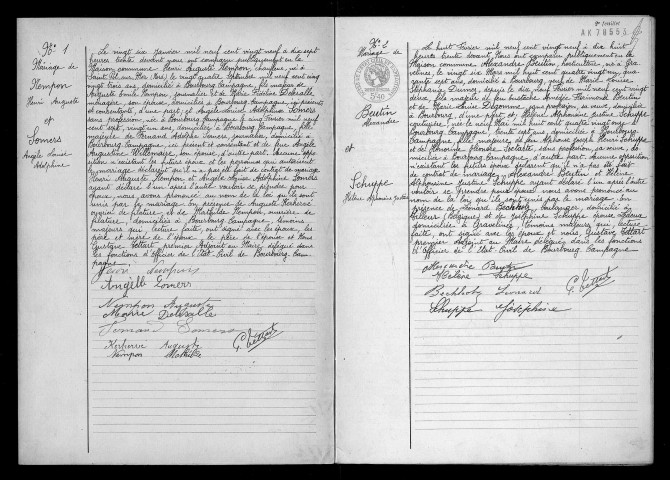 N° 1
Mariage de
Nempon
Henri Auguste
et
Somers
Angèle Louise
Adolphine
Le vingt six Janvier mil neuf cent vingt neuf à dix sept
heures trente devant nous ont comparu publiquement en la
Maison commune Henri Auguste Nempon, chauffeur, né à
Saint Pol sur Mer (Nord) le vingt quatre Septembre mil neuf cent
vingt trois ans, domicilié à Bourbourg Campagne, fils majeur de
Auguste Emile Nempon, journalier, et de Marie Louise Delzoille
ménagère, son épouse, domiciliés à Bourbourg Campagne, ici présents
et consentants, d'une part et Angèle Louise Adolphine Somers
sans profession, née à Bourbourg Campagne le cinq Février mil neuf
cent sept, vingt un ans, domiciliée à Bourbourg Campagne, fille
majeure de Fernand Adolphe Somers journalier, domicilié à
Bourbourg Campagne, ici présent et consentant et de feue Angèle
Augustine Willemaije, son épouse, d'autre part. Aucune oppo-
sition n'existant les futurs époux et les personnes qui autorisent
le mariage déclarent qu'il n'a pas été fait de contrat de mariage
Henri Auguste Nempon et Angèle Louise Adolphine Somers
ayant déclaré l'un après l'autre vouloir se prendre pour
époux, nous avons prononcé au nom de la loi qu'ils sont
unis par le mariage. En présence de Auguste Kerhervé
ouvrier de filature, et de Mathilde Nempon, ouvrière de
filature, domiciliés à Bourbourg Campagne, témoins
majeurs qui, lecture faite, ont signé avec les époux, les
père et mère de l'époux le père de l'épouse et Nous
Gustave Vettart, premier Adjoint au Maire, délégué dans
les fonctions d'Officier de l'Etat-Civil de Bourbourg Cam-
pagne
Henri Nempon
Angèle Somers
Nempon Auguste
Maria Delzoille
Fernand Somers
Kerhervé Auguste
Nempon Mathilde
G. Vettart
2e feuillet
AK 78553
N° 2
Mariage de
Beutin
Alexandre
et
Schuppe
Hélène Alphonsine Justine
Le huit Février mil neuf cent vingt neuf à dix huit
heures trente devant Nous ont comparu publiquement en la
Maison commune Alexandre Beutin, horticulteur, né à Gra-
velines, le vingt six Mars mil huit cent quatre vingt
ans, domicilié à Bourbourg, veuf de Marie Louise
Stéphanie depuis le dix neuf Février mil neuf cent vingt
fils majeur de feu Anselme Fernand Beutin
et de Marie Louise Delgomme, sans profession, sa veuve, domiciliée
à Bourbourg, d'une part, et Hélène Alphonsine Justine Schuppe
née le neuf Mai mil huit cent quatre vingt onze à
Bourbourg Campagne, trente sept ans, domiciliée à Bourbourg
Campagne, fille majeure de feu Alphonse Joseph Henri Schuppe
et de sans profession, sa veuve, do-
miciliée à Bourbourg Campagne, d'autre part. Aucune opposition
n'existant les futurs époux déclarent qu'il n'a pas été fait
de contrat de mariage. Alexandre Beutin et Hélène
Alphonsine Justine Schuppe ayant déclaré l'un après l'autre
vouloir se prendre pour époux nous avons prononcé au
nom de la loi qu'ils sont unis par le mariage. En
présence de Léonard Bechholz, boulanger, domicilié à
(Belgique) et de Joséphine Schuppe
domiciliée à Gravelines, témoins majeurs qui, lecture
faite, ont signé avec les époux et nous, Gustave Vettart
premier Adjoint au Maire délégué dans les fonctions
d'Officier de l'Etat-Civil de Bourbourg Campagne
Alexandre Beutin
Hélène Schuppe
Bechholz Léonard
G. Vettart
Schuppe Joséphine